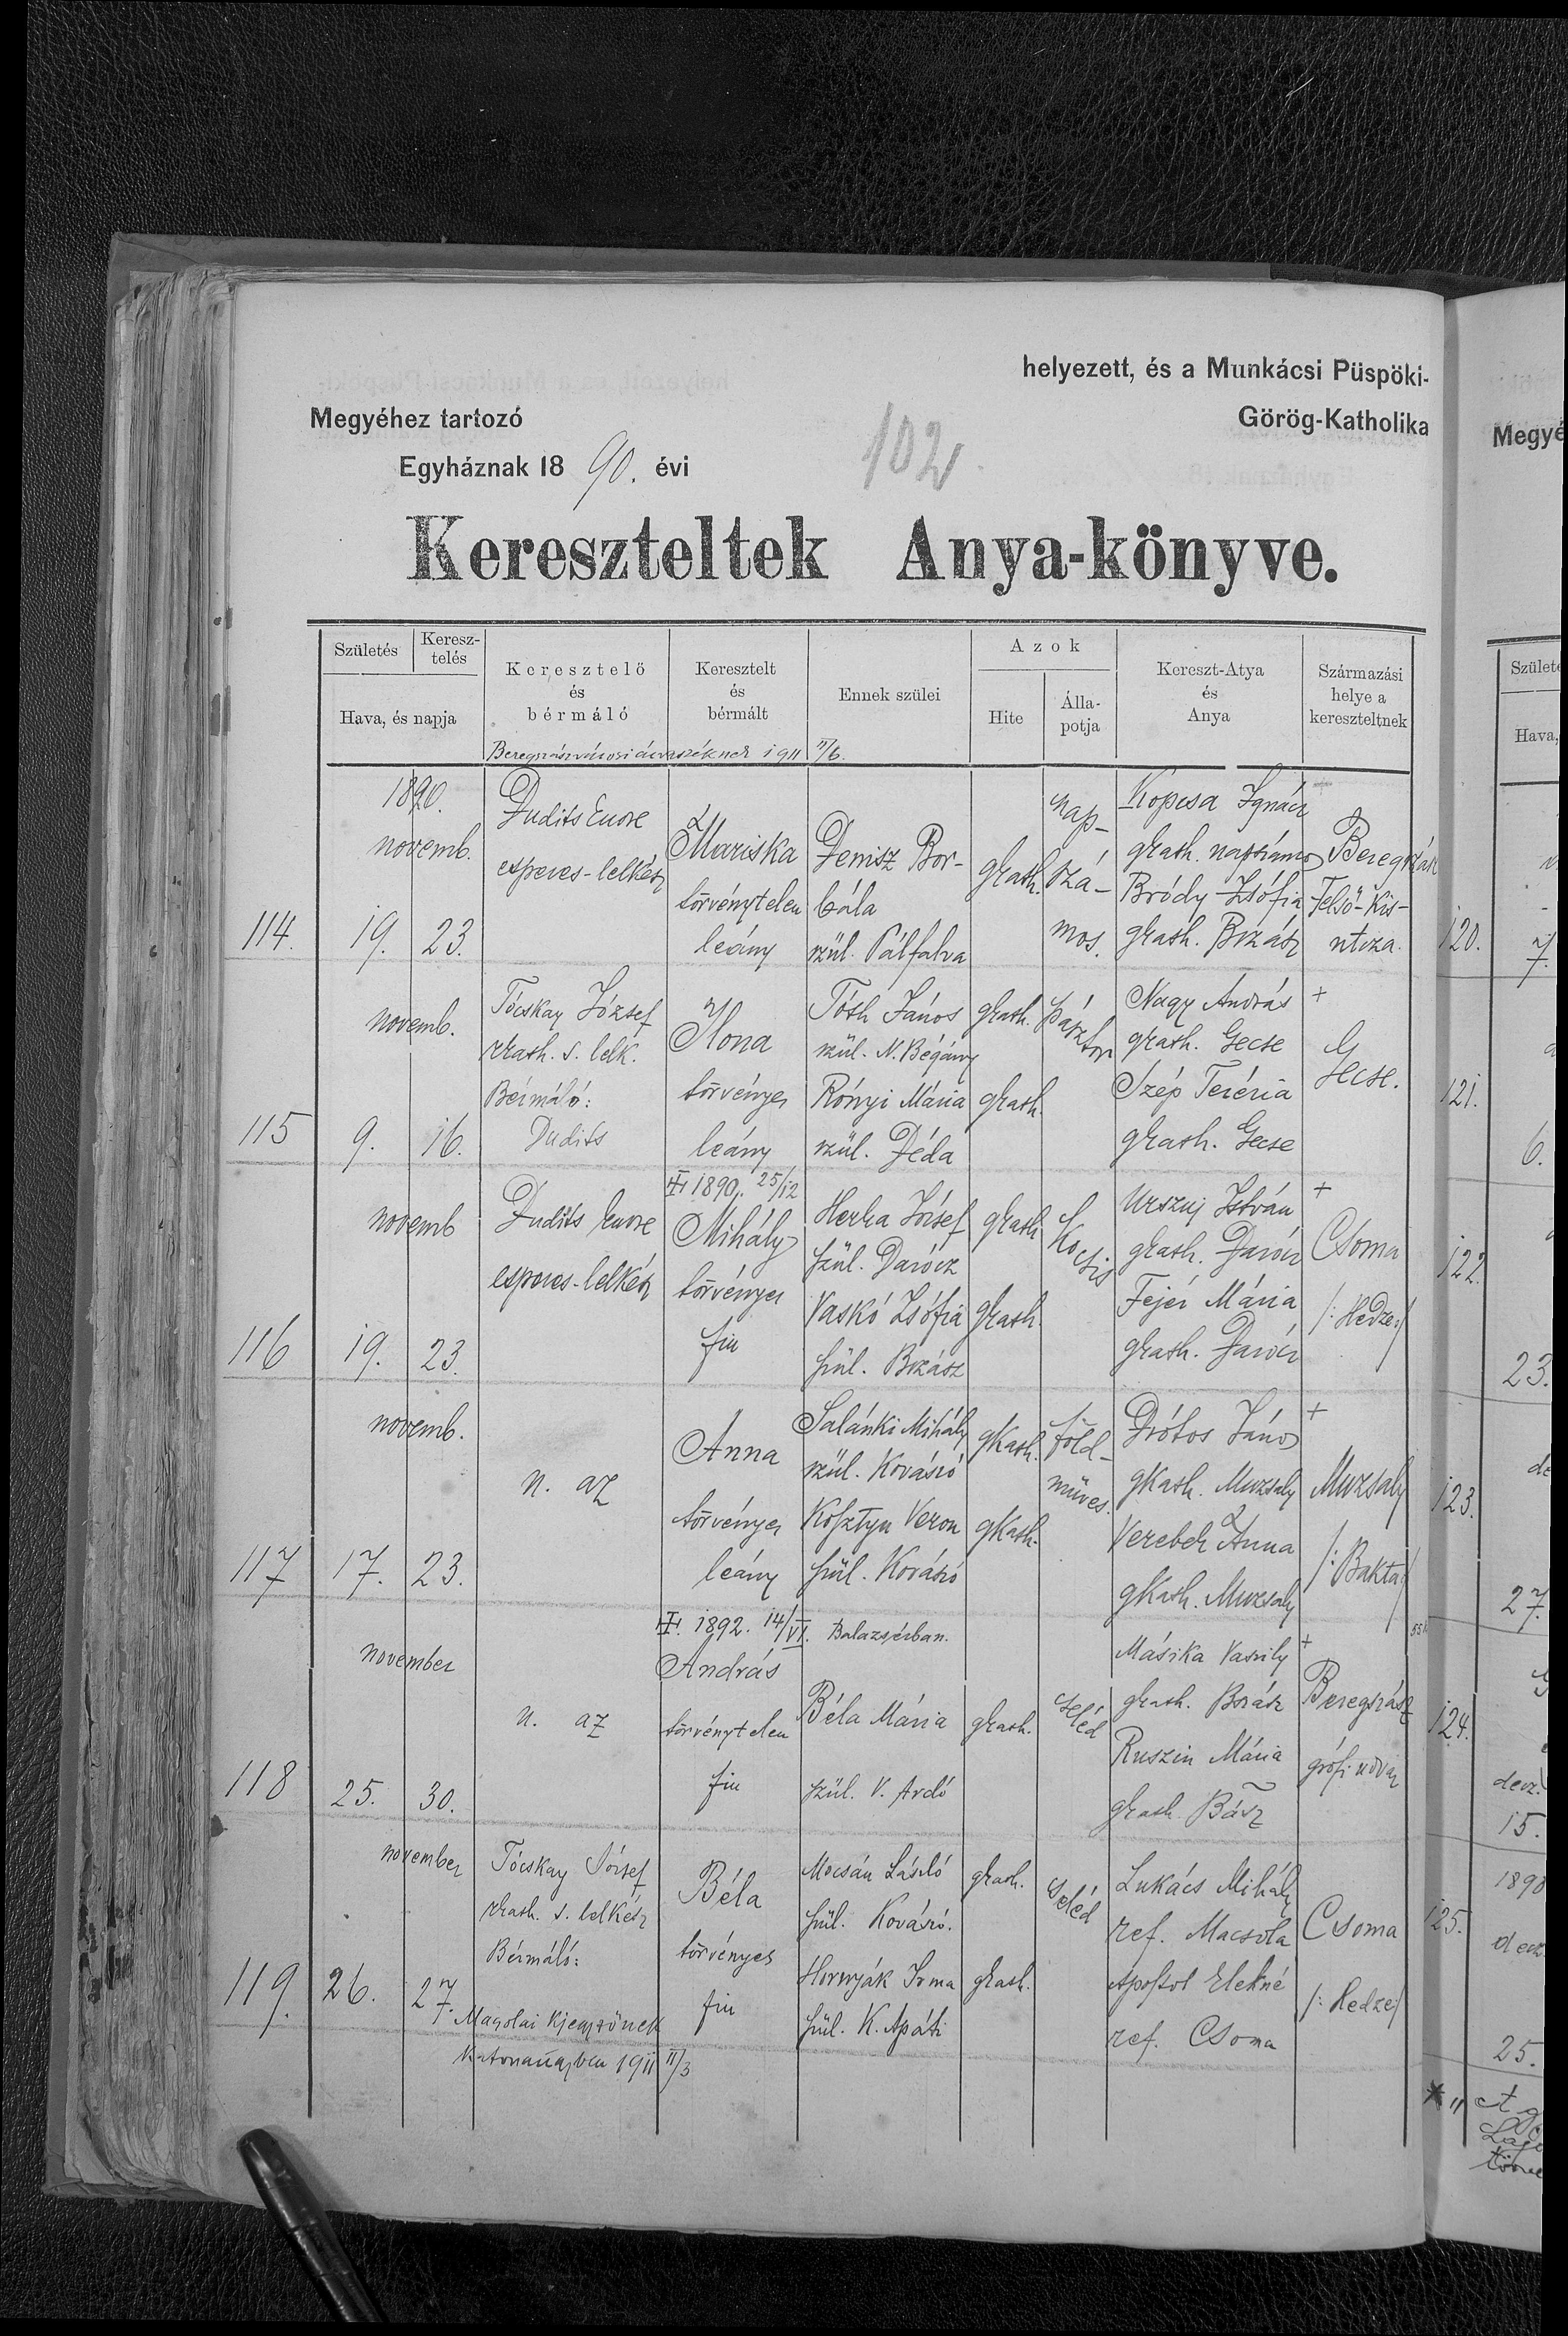 helyezett, és a Munkácsi Püspöki-
Megyéhez tartozó
Görög-Katholika
Egyháznak 18 90. évi
102
Kereszteltek Anya-könyve.
Születés
Keresz-
telés
Hava, és napja
Keresztelő
és
bérmáló
Keresztelt
és
bérmált
Ennek szülei
Azok
Hite
Álla-
potja
Kereszt-Atya
és
Anya
Származási
helye a
kereszteltnek
1911 II/6.
114.
1890.
novemb.
19. 23.
Dudits Emre
esperes-lelkész
Mariska
törvénytelen
leány
Denisz Bor-
bála
szül. Pálfalva
gkath.
nap-
szá-
mos.
Kopcsa Ignácz
gkath. napszámos
Bródy Zsófia
gkath. Bszász
Beregszász
Felső-Kis-
utcza.
115
novemb.
9. 16.
Tócskay József
rkath. s. lelk.
Bérmáló:
Dudits
Ilona
törvényes
leány
Tóth János
szül. N. Bégány
Rónyi Mária
szül. Déda
gkath.
gkath.
pásztor
Nagy András
gkath. Gecse
Szép Terézia
gkath. Gecse
+
Gecse.
116
novemb
19. 23.
Dudits Emre
esperes-lelkész
1890. 25/12
Mihály
törvényes
fiu
Herka József
szül. Darócz
Vaskó Zsófia
szül. Bszász
gkath
gkath.
Kocsis
Urszuj István
gkath. Darócz
Fejér Mária
gkath. Darócz
+
Csoma
/: Hedze:/
117
novemb.
17. 23.
u. az
Anna
törvényes
leány
Salánki Mihály
szül. Kovászó
Kosztyu Veron
szül. Kovászó
gkath.
gkath.
föld-
műves.
Drótos János
gkath. Muzsaly
Vereb Anna
gkath. Muzsaly
+
Muzsaly
/: Bakta:/
118
november
25. 30.
u. az
1892. 14/VI. Balazsérban.
András
törvénytelen
fiu
Béla Mária
szül. V. Ardó
gkath.
cseléd
Másika Vaszily
gkath. Bszász
Ruszin Mária
gkath. Bász
+
Beregszász
grófi udvar
119.
november
26. 27.
Tócskay József
rkath. s. lelkész
Bérmáló:
Béla
törvényes
fiu
Mocsán László
szül. Kovászó.
Hornyák Irma
szül. K. Apáti
gkath.
gkath.
cseléd
Lukács Mihály
ref. Macsola
Apostol Elekné
ref. Csoma
Csoma
/: Hedze:/
1911 II/3
Megyé
Születé
Hava,
120.
7.
121.
6.
122.
23.
123.
27.
124.
decz.
15.
1890
125.
decz.
25.